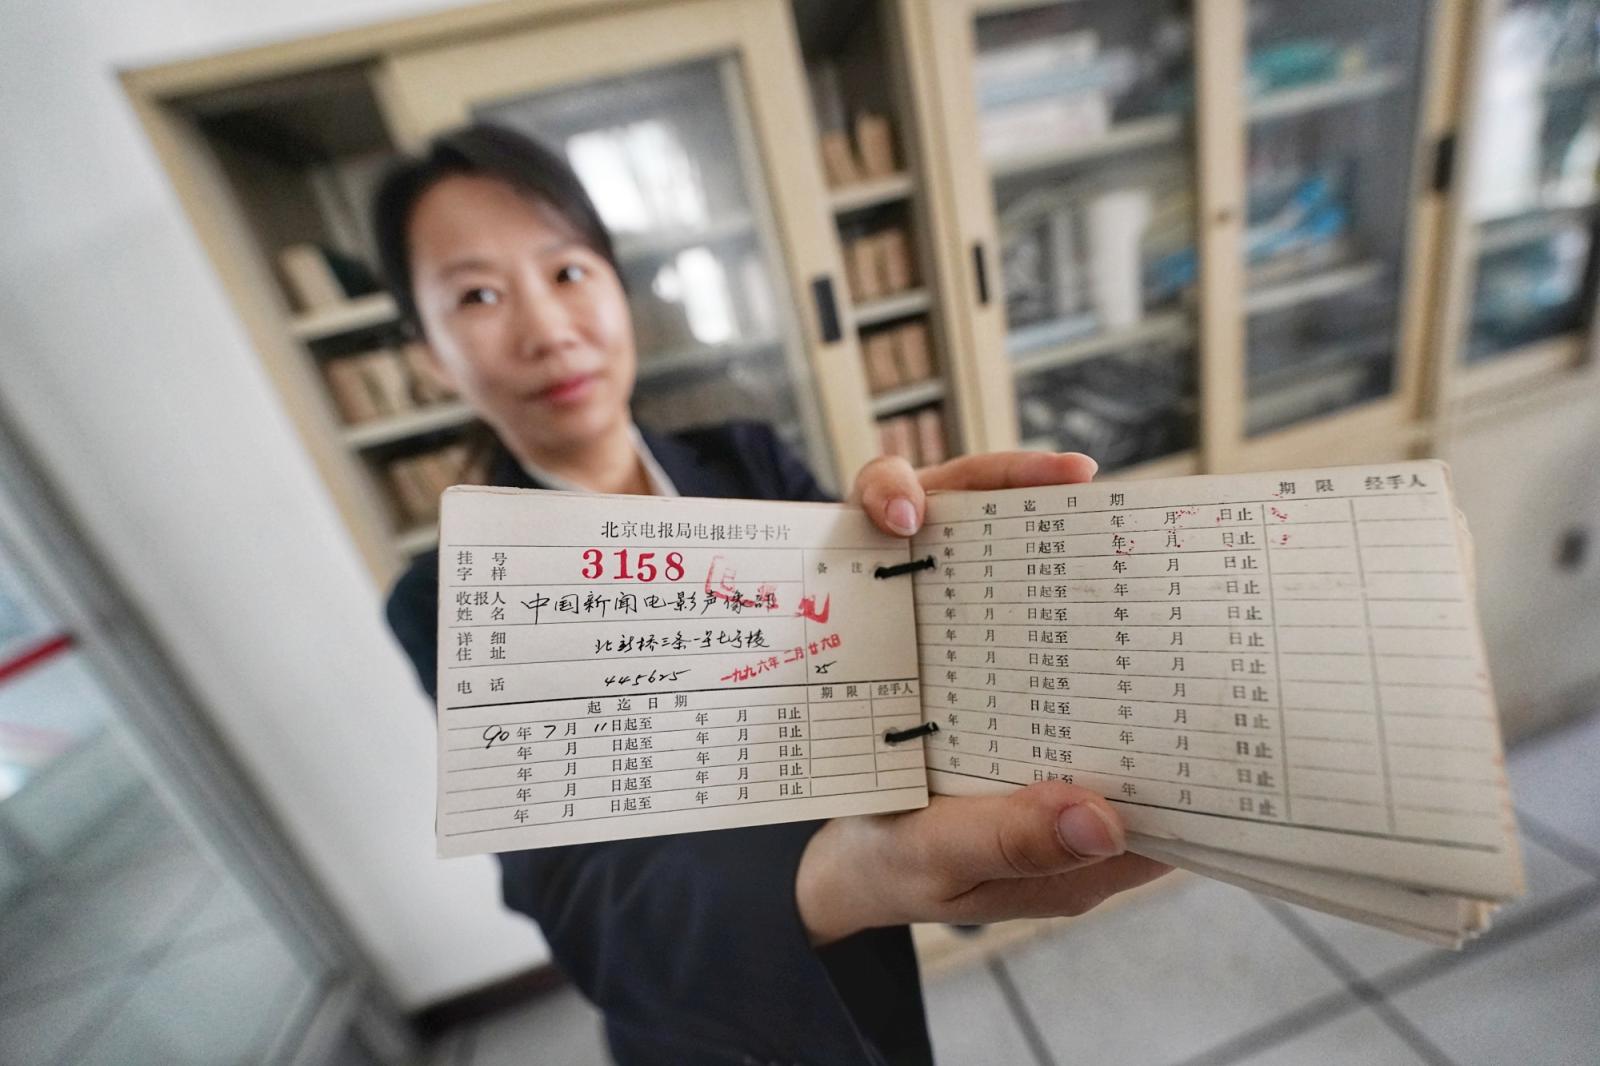 北京电报局电报挂号卡片
挂号字样 3158
备注
收报人姓名 中国新闻电影声像部
详细住址 北新桥三条一号七号楼
一九九六年二月廿六日
电话 445625
25
起迄日期 期限 经手人
90年7月11日起至 年 月 日止
年 月 日起至 年 月 日止
年 月 日起至 年 月 日止
年 月 日起至 年 月 日止
年 月 日起至 年 月 日止
起迄日期 期限 经手人
年 月 日起至 年 月 日止
年 月 日起至 年 月 日止
年 月 日起至 年 月 日止
年 月 日起至 年 月 日止
年 月 日起至 年 月 日止
年 月 日起至 年 月 日止
年 月 日起至 年 月 日止
年 月 日起至 年 月 日止
年 月 日起至 年 月 日止
年 月 日起至 年 月 日止
年 月 日起至 年 月 日止